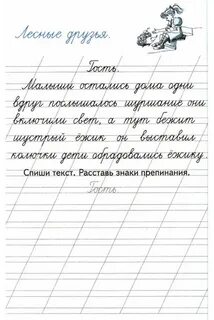 Лесные друзья.
Гость.
Малыши остались дома одни
вдруг послышалось шуршание они
включили свет, а тут бежит
шустрый ёжик он выставил
колючки дети обрадовались ёжику
Спиши текст. Расставь знаки препинания.
Гость